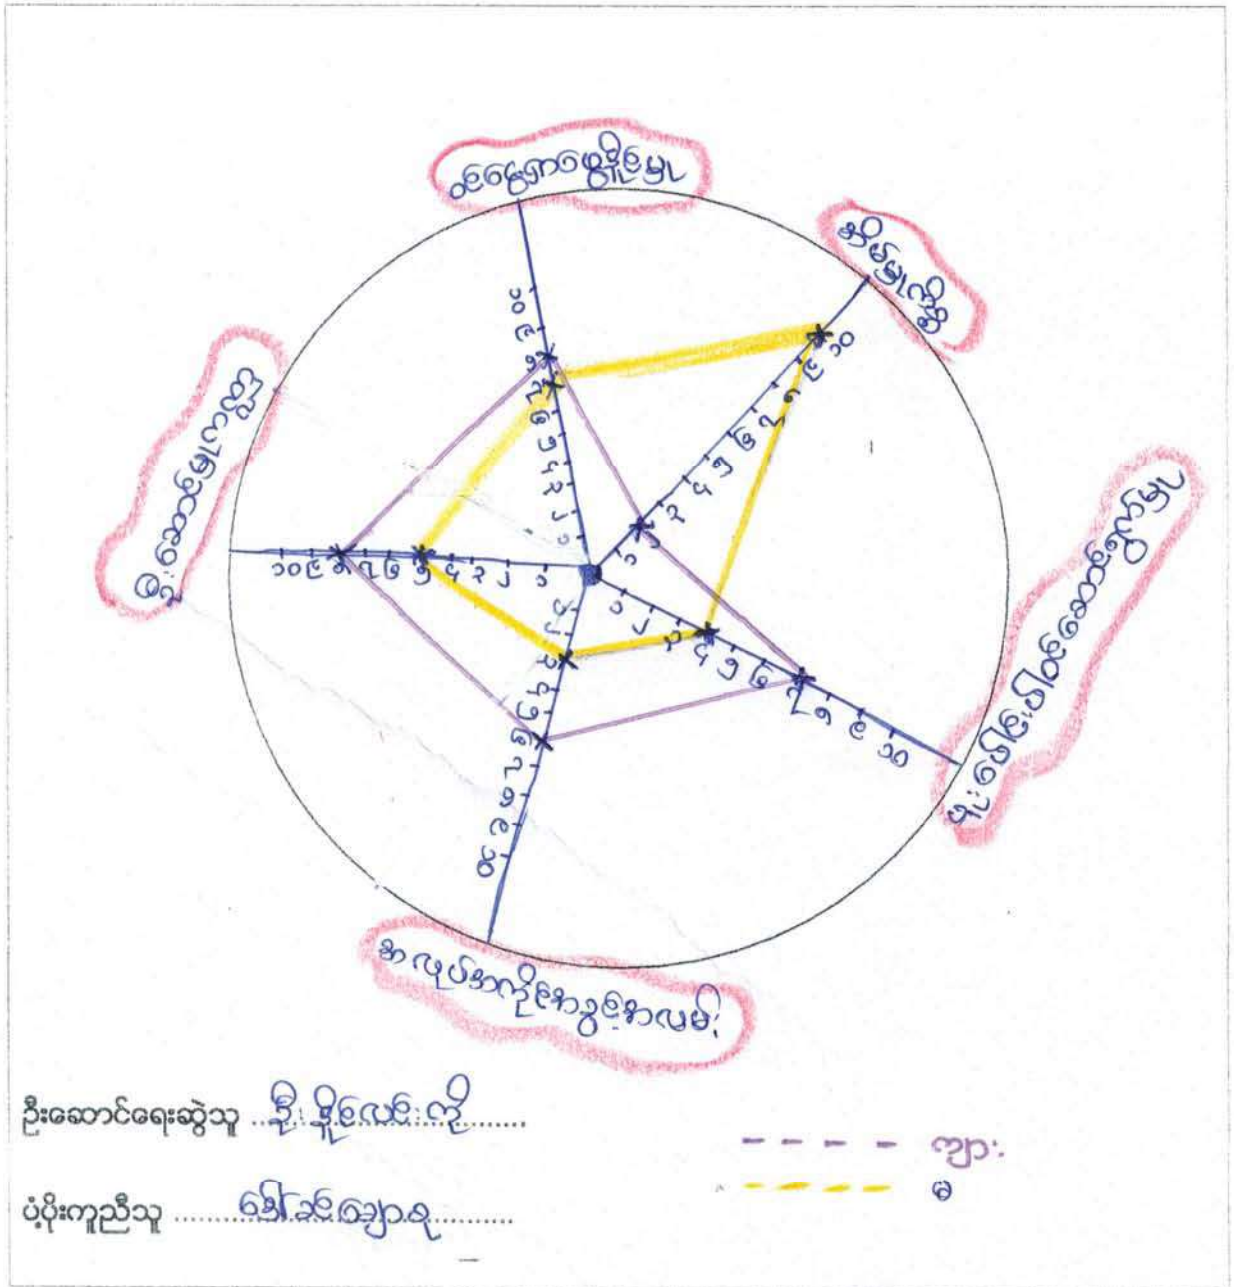 ဝင်ငွေရှာဖွေနိုင်မှု
အိမ်မှုကိစ္စ
ပူးပေါင်းပါဝင်ဆောင်ရွက်မှု
အလုပ်အကိုင်အခွင့်အလမ်း
၁ ၂ ၃ ၄ ၅ ၆ ၇ ၈ ၉ ၁၀
၁ ၂ ၃ ၄ ၅ ၆ ၇ ၈ ၉ ၁၀
၁ ၂ ၃ ၄ ၅ ၆ ၇ ၈ ၉ ၁၀
၁ ၂ ၃ ၄ ၅ ၆ ၇ ၈ ၉ ၁၀
၁ ၂ ၃ ၄ ၅ ၆ ၇ ၈ ၉ ၁၀
ဦးဆောင်ရေးဆွဲသူ ဦးနိုင်လင်းကို
ကျား
မ
ပံ့ပိုးကူညီသူ